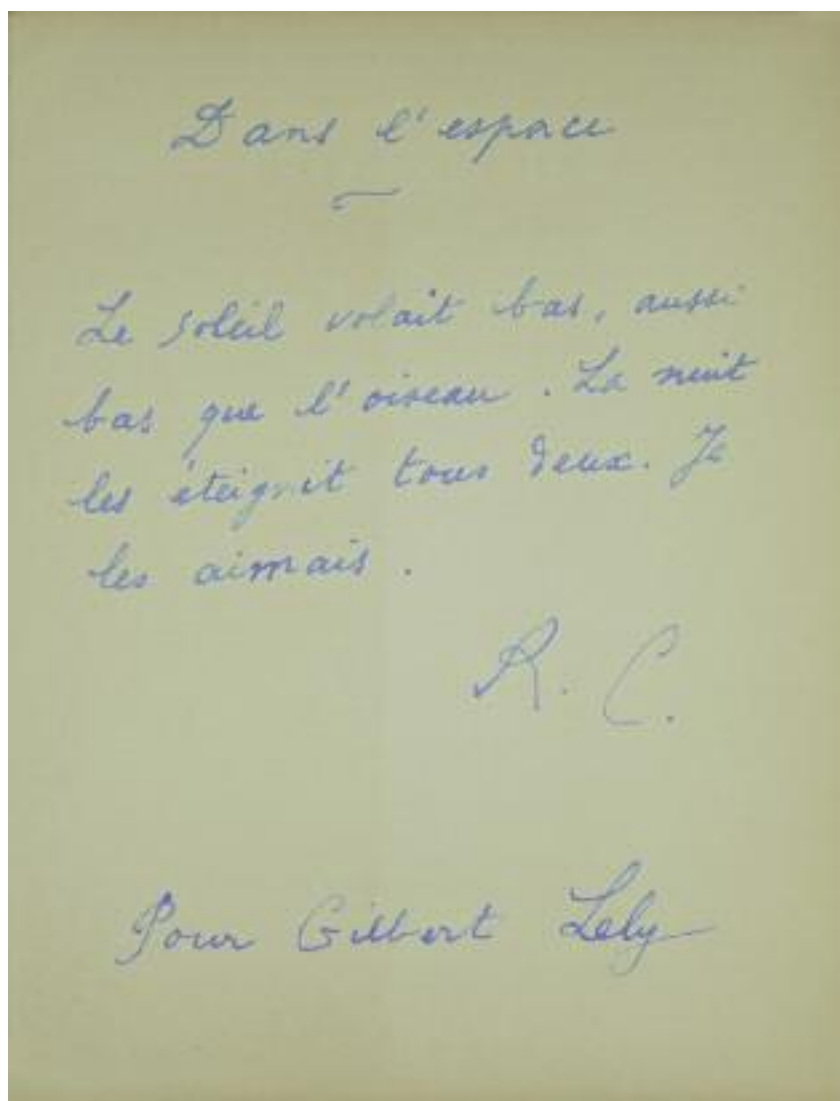 Dans l'espace
Le soleil volait bas, aussi
bas que l'oiseau. La nuit
les éteignit tous deux. Je
les aimais.
R. C.
Pour Gilbert Lely